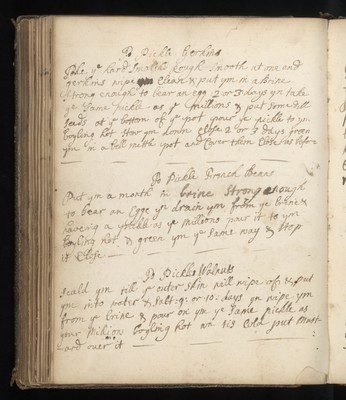 To Pickle Gerkins
Take ye hard Small rough Smooth at one end
gerkins wipe ym Clean & put ym in a brine
Strong enough to bear an egg 2 or 3 days yn take
ye Same pickle as ye Millions & put Some dill
Seads at ye bottom of ye pot your ye pickle to ym
boyling hot Stow ym down Close 2 or 3 days green
ym in a bell mettle pot and Cover them Close as before
To Pickle French Beans
Put ym a month in brine Strong enough
to bear an Egge yn drain ym from ye brine &
haveing a pickle as ye Millions pour it to ym
boyling hot & green ym ye Same way & Stop
it Close
To Pickle Walnuts
Scald ym till ye outer Skin will wipe of & put
ym into water & Salt: 9: or 10: days yn wipe ym
from ye brine & pour on ym ye Same pickle as
your Millions boyling hot wn tis Cold put Must-
ard over it